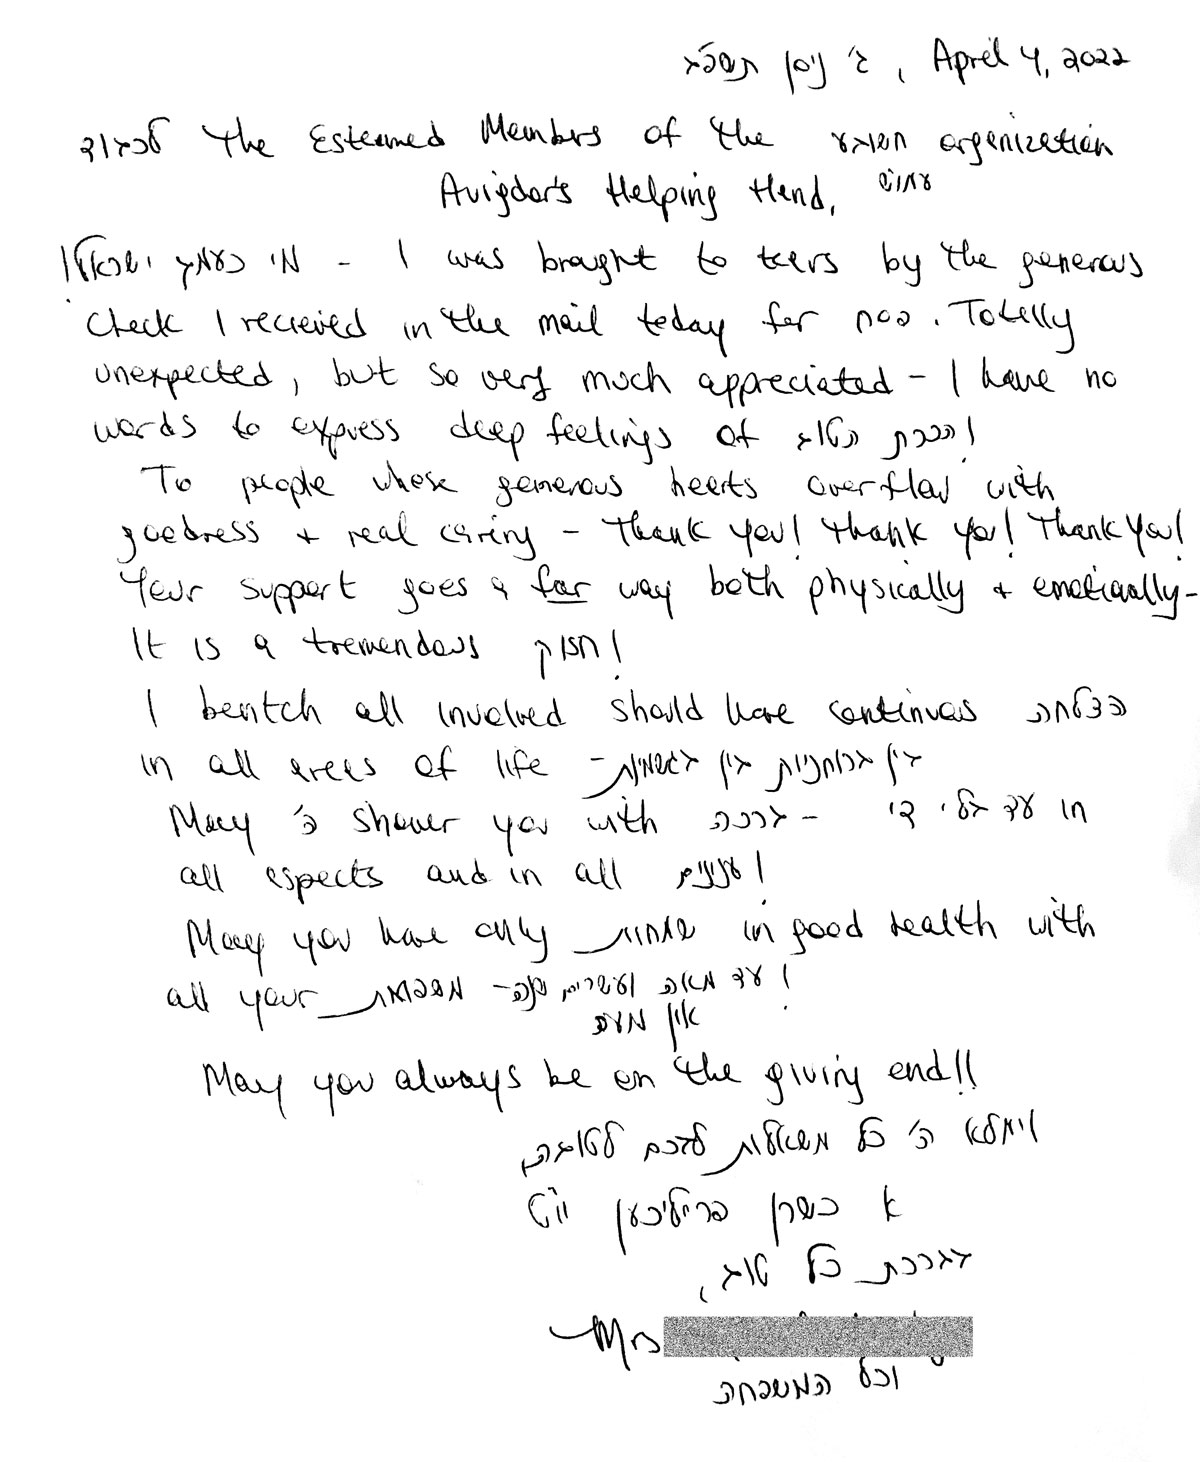 ג' ניסן תשפ"ב, April 4, 2022
לכבוד The Esteemed Members of the חשובע organization
Avigdor's Helping Hand, עמו"ש
מי כעמך ישראל! - I was brought to tears by the generous
check I recieved in the mail today for פסח. Totally
unexpected, but so very much appreciated - I have no
words to express deep feelings of הכרת הטוב!
To people whose generous hearts overflow with
goodness + real caring - Thank you! Thank you! Thank you!
Your support goes a far way both physically + emotionally-
It is a tremendous חיזוק!
I bentch all involved should have continuous הצלחה
in all areas of life - בין ברוחניות בין בגשמיות
May ה' shower you with ברכה - עד בלי די in
all aspects and in all ענינים!
May you have only שמחות in good health with
all your משפחות - עד מאה ועשרים שנה!
אין
May you always be on the giving end!!
וימלא ה' כל משאלות לבכם לטובה,
א כשרן פרייליכען יו"ט
בברכת כל טוב,
Mrs
וכל המשפחה